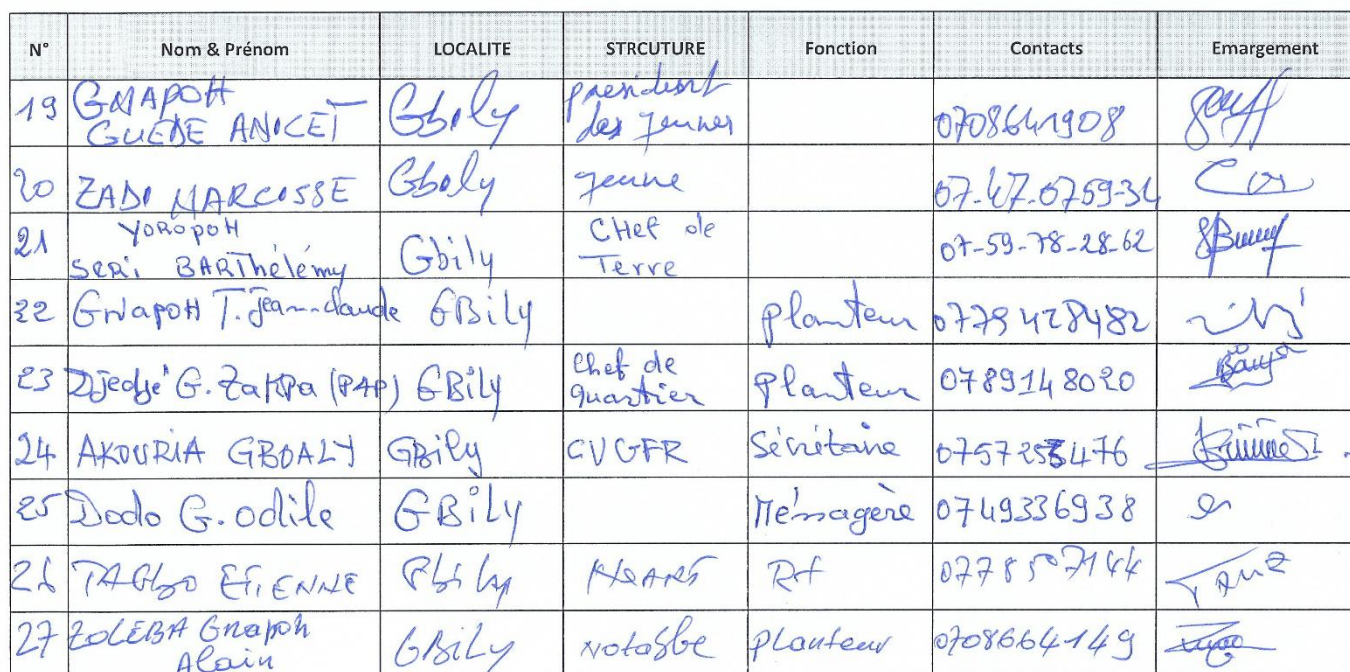 N° Nom & Prénom LOCALITE STRCUTURE Fonction Contacts Emargement
19 GNAPOH GUEDE ANICET Gbily president des jeunes 0708641908
20 ZADI MARCOSSE Gboly jeune 07-47-0759-34
21 YOROPOH SERI BARThélémy Gbily CHef de Terre 07-59-78-28-62
22 GNAPOH T. Jean-claude GBily planteur 0779428482
23 Djedjé G. Zakpa (PAP) GBily chef de quartier Planteur 0789148020
24 AKOURIA GBOALY GBily CVGFR Sécrétaire 0757253476
25 Dodo G. odile GBily Ménagère 0749336938
26 TAGBO ETIENNE Gbily Rf 0778507144
27 ZOLEBA Gnapoh Alain GBily Notable planteur 0708664149